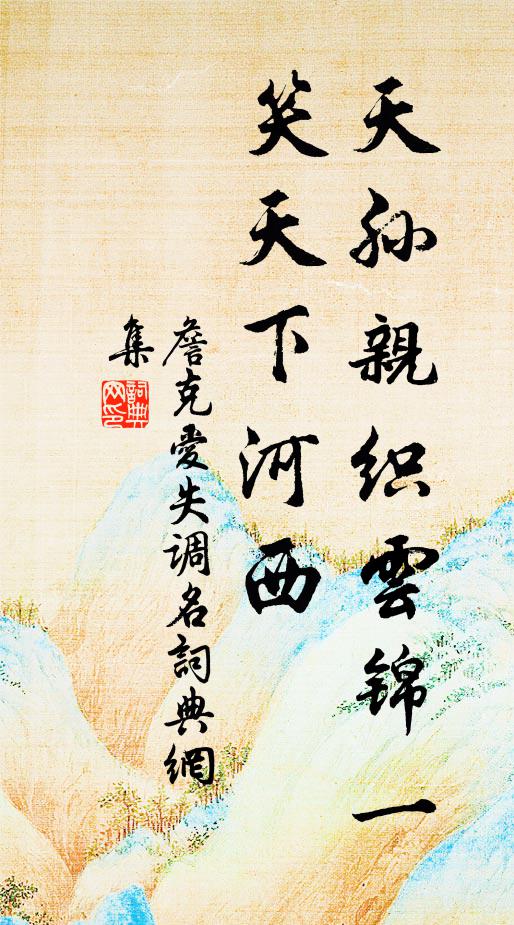 天孙親织雲锦一
笑天下河西
詹克愛失调名詞典網
集
詞典网印